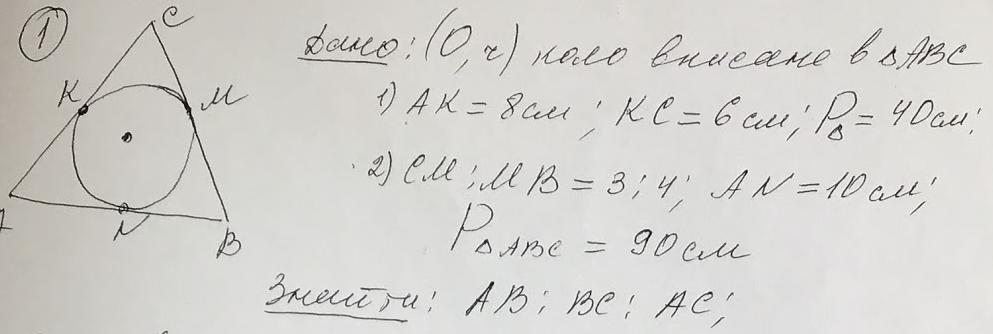 1
C
K
M
A
N
B
Дано: (O, r) коло вписане в △ABC
1) AK = 8см; KC = 6см; P△ = 40см;
2) CM : MB = 3 : 4; AN = 10см;
P△ABC = 90см
Знайти: AB; BC; AC;